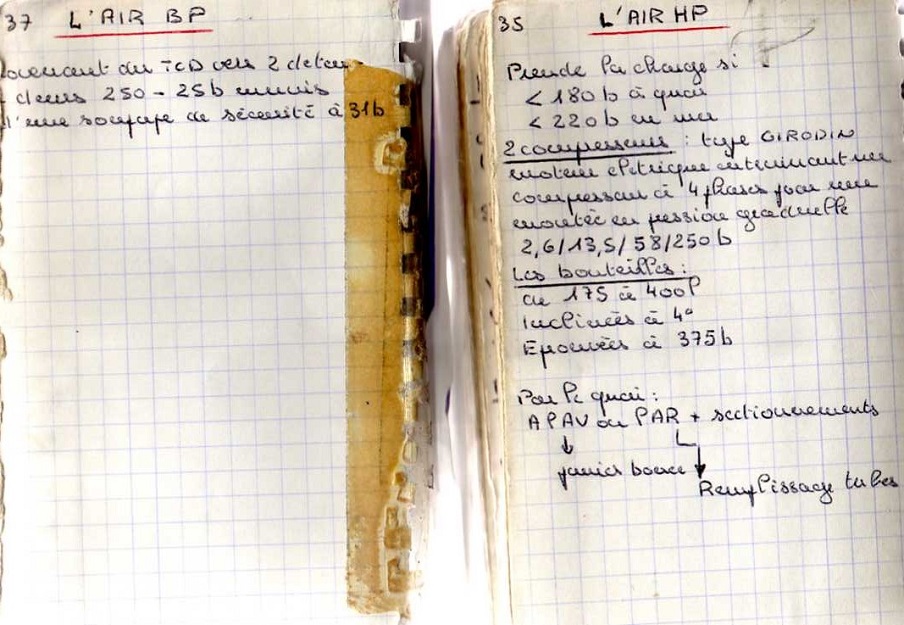 37 L'AIR BP
Provenant du TCD vers 2 déten-
deurs 250 - 25b munis
d'une soupape de sécurité à 31b
35 L'AIR HP
Prende la charge si
< 180 b à quai
< 220 b en mer
2 compresseurs : type GIRODIN
moteur eletrique entrainant un
compresseur à 4 phases pour une
montée en pression graduelle
2,6/13,5/58/250 b
Les bouteilles :
de 175 à 400l
Inclinées à 4°
Eprouvées à 375b
Par le quai :
APAV ou PAR + sectionnements
bouée
Remplissage tubes